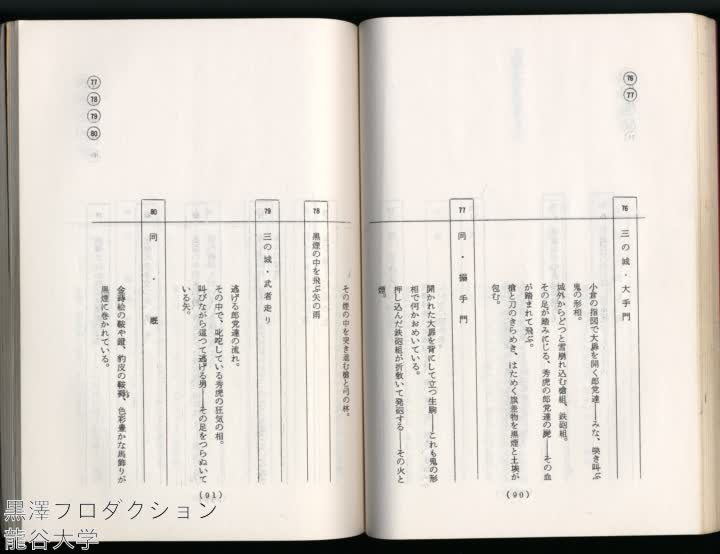 76
77
76
三の城・大手門
小倉の指図で大扉を開く郎党達――みな、喚き叫ぶ
鬼の形相。
城外からどっと雪崩れ込む槍組、鉄砲組。
その足が踏みにじる、秀虎の郎党達の屍――その血
が踏まれて飛ぶ。
槍と刀のきらめき、はためく旗差物を黒煙と土埃が
包む。
77
同・搦手門
開かれた大扉を背にして立つ生駒――これも鬼の形
相で何かおめいている。
押し込んだ鉄砲組が折敷いて発砲する――その火と
煙。
(90)
77
78
79
80
その煙の中を突き進む槍と弓の林。
78
黒煙の中を飛ぶ矢の雨
79
三の城・武者走り
逃げる郎党達の流れ。
その中で、叱咤している秀虎の狂気の相。
叫びながら這つて逃げる男――その足をつらぬいて
いる矢。
80
同・厩
金蒔絵の鞍や鐙、豹皮の鞍褥、色彩豊かな馬飾りが
黒煙に巻かれている。
(91)
黒澤プロダクション
龍谷大学